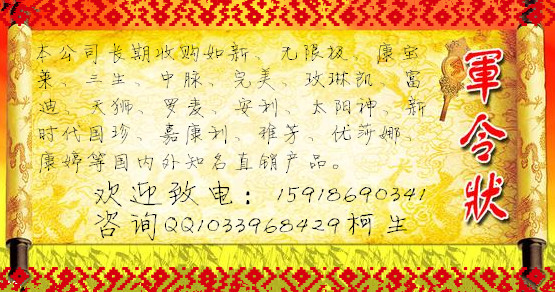 本公司长期收购如新、无限极、康宝
莱、三生、中脉、完美、玫琳凯、富
迪、天狮、罗麦、安利、太阳神、新
时代国珍、嘉康利、雅芳、优莎娜、
康婷等国内外知名直销产品。
欢迎致电：15918690341
咨询QQ1033968429柯生
軍令狀